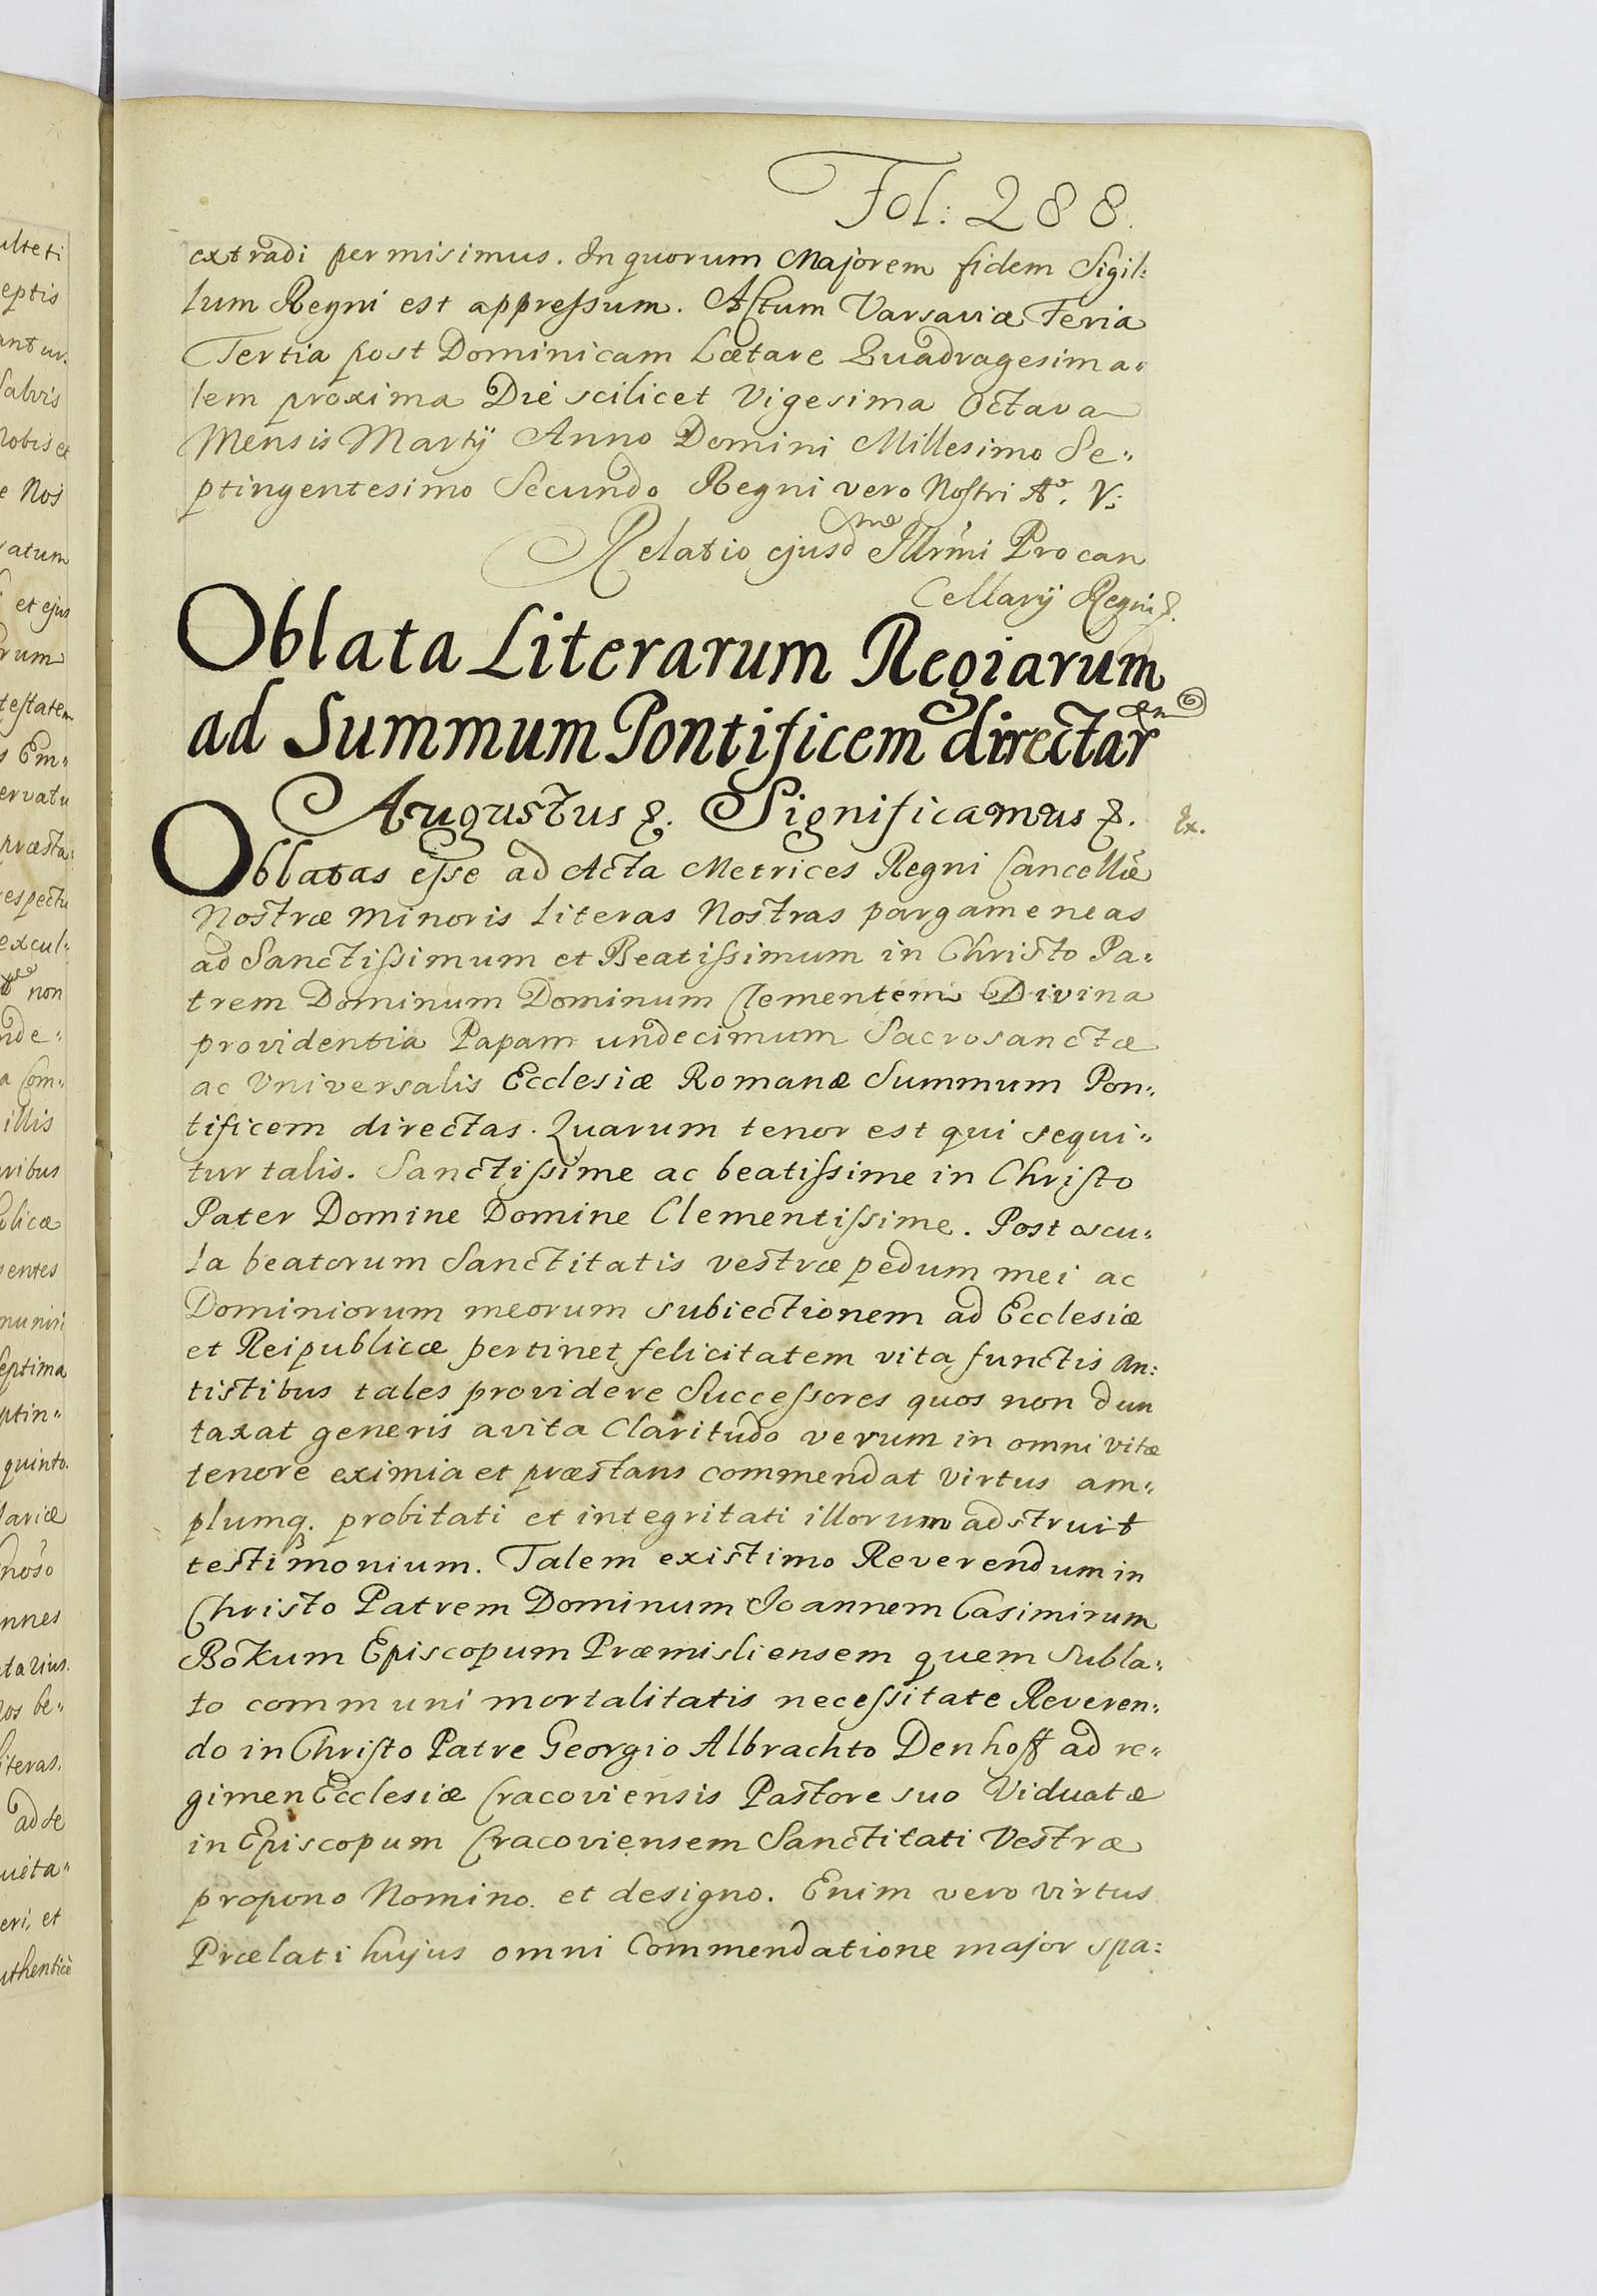 Fol: 288.
extradi permisimus. In quorum Majorem fidem Sigil:
lum Regni est appressum. Actum Varsaviæ Feria
Tertia post Dominicam Lætare Quadragesima„
lem proxima Die scilicet Vigesima Octava
Mensis Martij Anno Domini Millesimo Se„
ptingentesimo Secundo Regni vero Nostri Aº. V:
Relatio ejusd Illrmi Procan
Cellarij Regni &.
Oblata Literarum Regiarum
ad Summum Pontificem directar
Augustus &. Significamus &.
Ex.
Oblatas esse ad Acta Metrices Regni Cancellæ
Nostræ Minoris Literas Nostras pargameneas
ad Sanctissimum et Beatissimum in Christo Pa„
trem Dominum Dominum Clementem Divina
providentia Papam undecimum Sacrosanctæ
ac Vniversalis Ecclesiæ Romanæ Summum Pon„
tificem directas. Quarum tenor est qui sequi„
tur talis. Sanctissime ac beatissime in Christo
Pater Domine Domine Clementissime. Post oscu„
la beatorum Sanctitatis vestræ pedum mei ac
Dominiorum meorum subiectionem ad Ecclesiæ
et Reipublicæ pertinet felicitatem vita functis An:
tistibus tales providere Successores quos non dun
taxat generis avita Claritudo verum in omni vitæ
tenore eximia et præstans commendat virtus am„
plumq. probitati et integritati illorum adstruit
testimonium. Talem existimo Reverendum in
Christo Patrem Dominum Joannem Casimirum
Bokum Episcopum Præmisliensem quem Subla„
to communi mortalitatis necessitate Reveren„
do in Christo Patre Georgio Albrachto Denhoff ad re„
gimen Ecclesiæ Cracoviensis Pastore suo Viduatæ
in Episcopum Cracoviensem Sanctitati Vestræ
propono Nomino. et designo. Enim vero virtus
Prælati hujus omni Commendatione major spa: